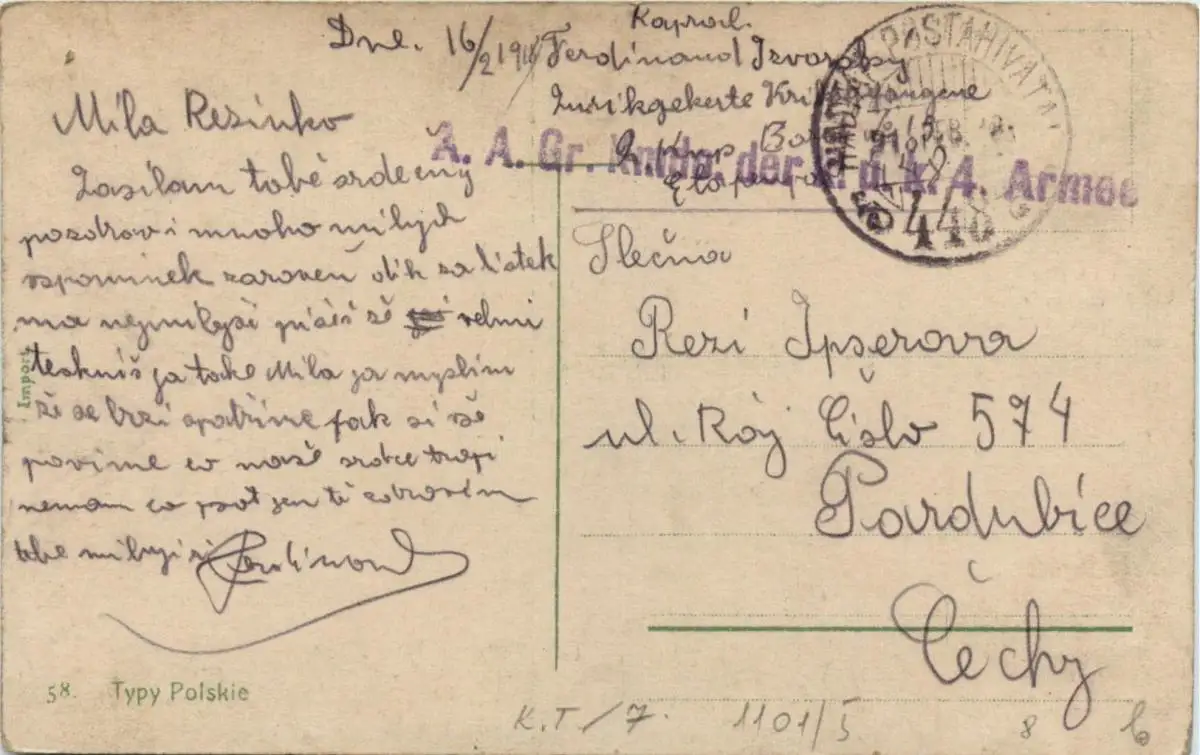 Dne. 16/2 191
Kaprol.
Ferdinand Izvorsky
Zurikgekerte Krigsgfangene
2. Kmp. Ba
Etapenpo
K. A. Gr. Kmdo. der k. u. k. 4. Armee
TÁBORI POSTAHIVATAL
18 FEB.
448
Mila Rezinko
Zasilam tobě srdečny
pozdrov i mnoho milych
vspominek zaroveň dik za listek
ma nejmilejši pišeš že velmi
teskniš ja take Mila ja myslim
že se brzi spatřime pak si vše
povime co naše srdce trapi
nemam co psat jen tě zdravim
tebe miluji ci Ferdinand
Slečna
Rezi Ipserova
ul. Ráj Čislo 574
Pardubice
Čechy
Import
58. Typy Polskie
K.T/7. 1101/5 8 b